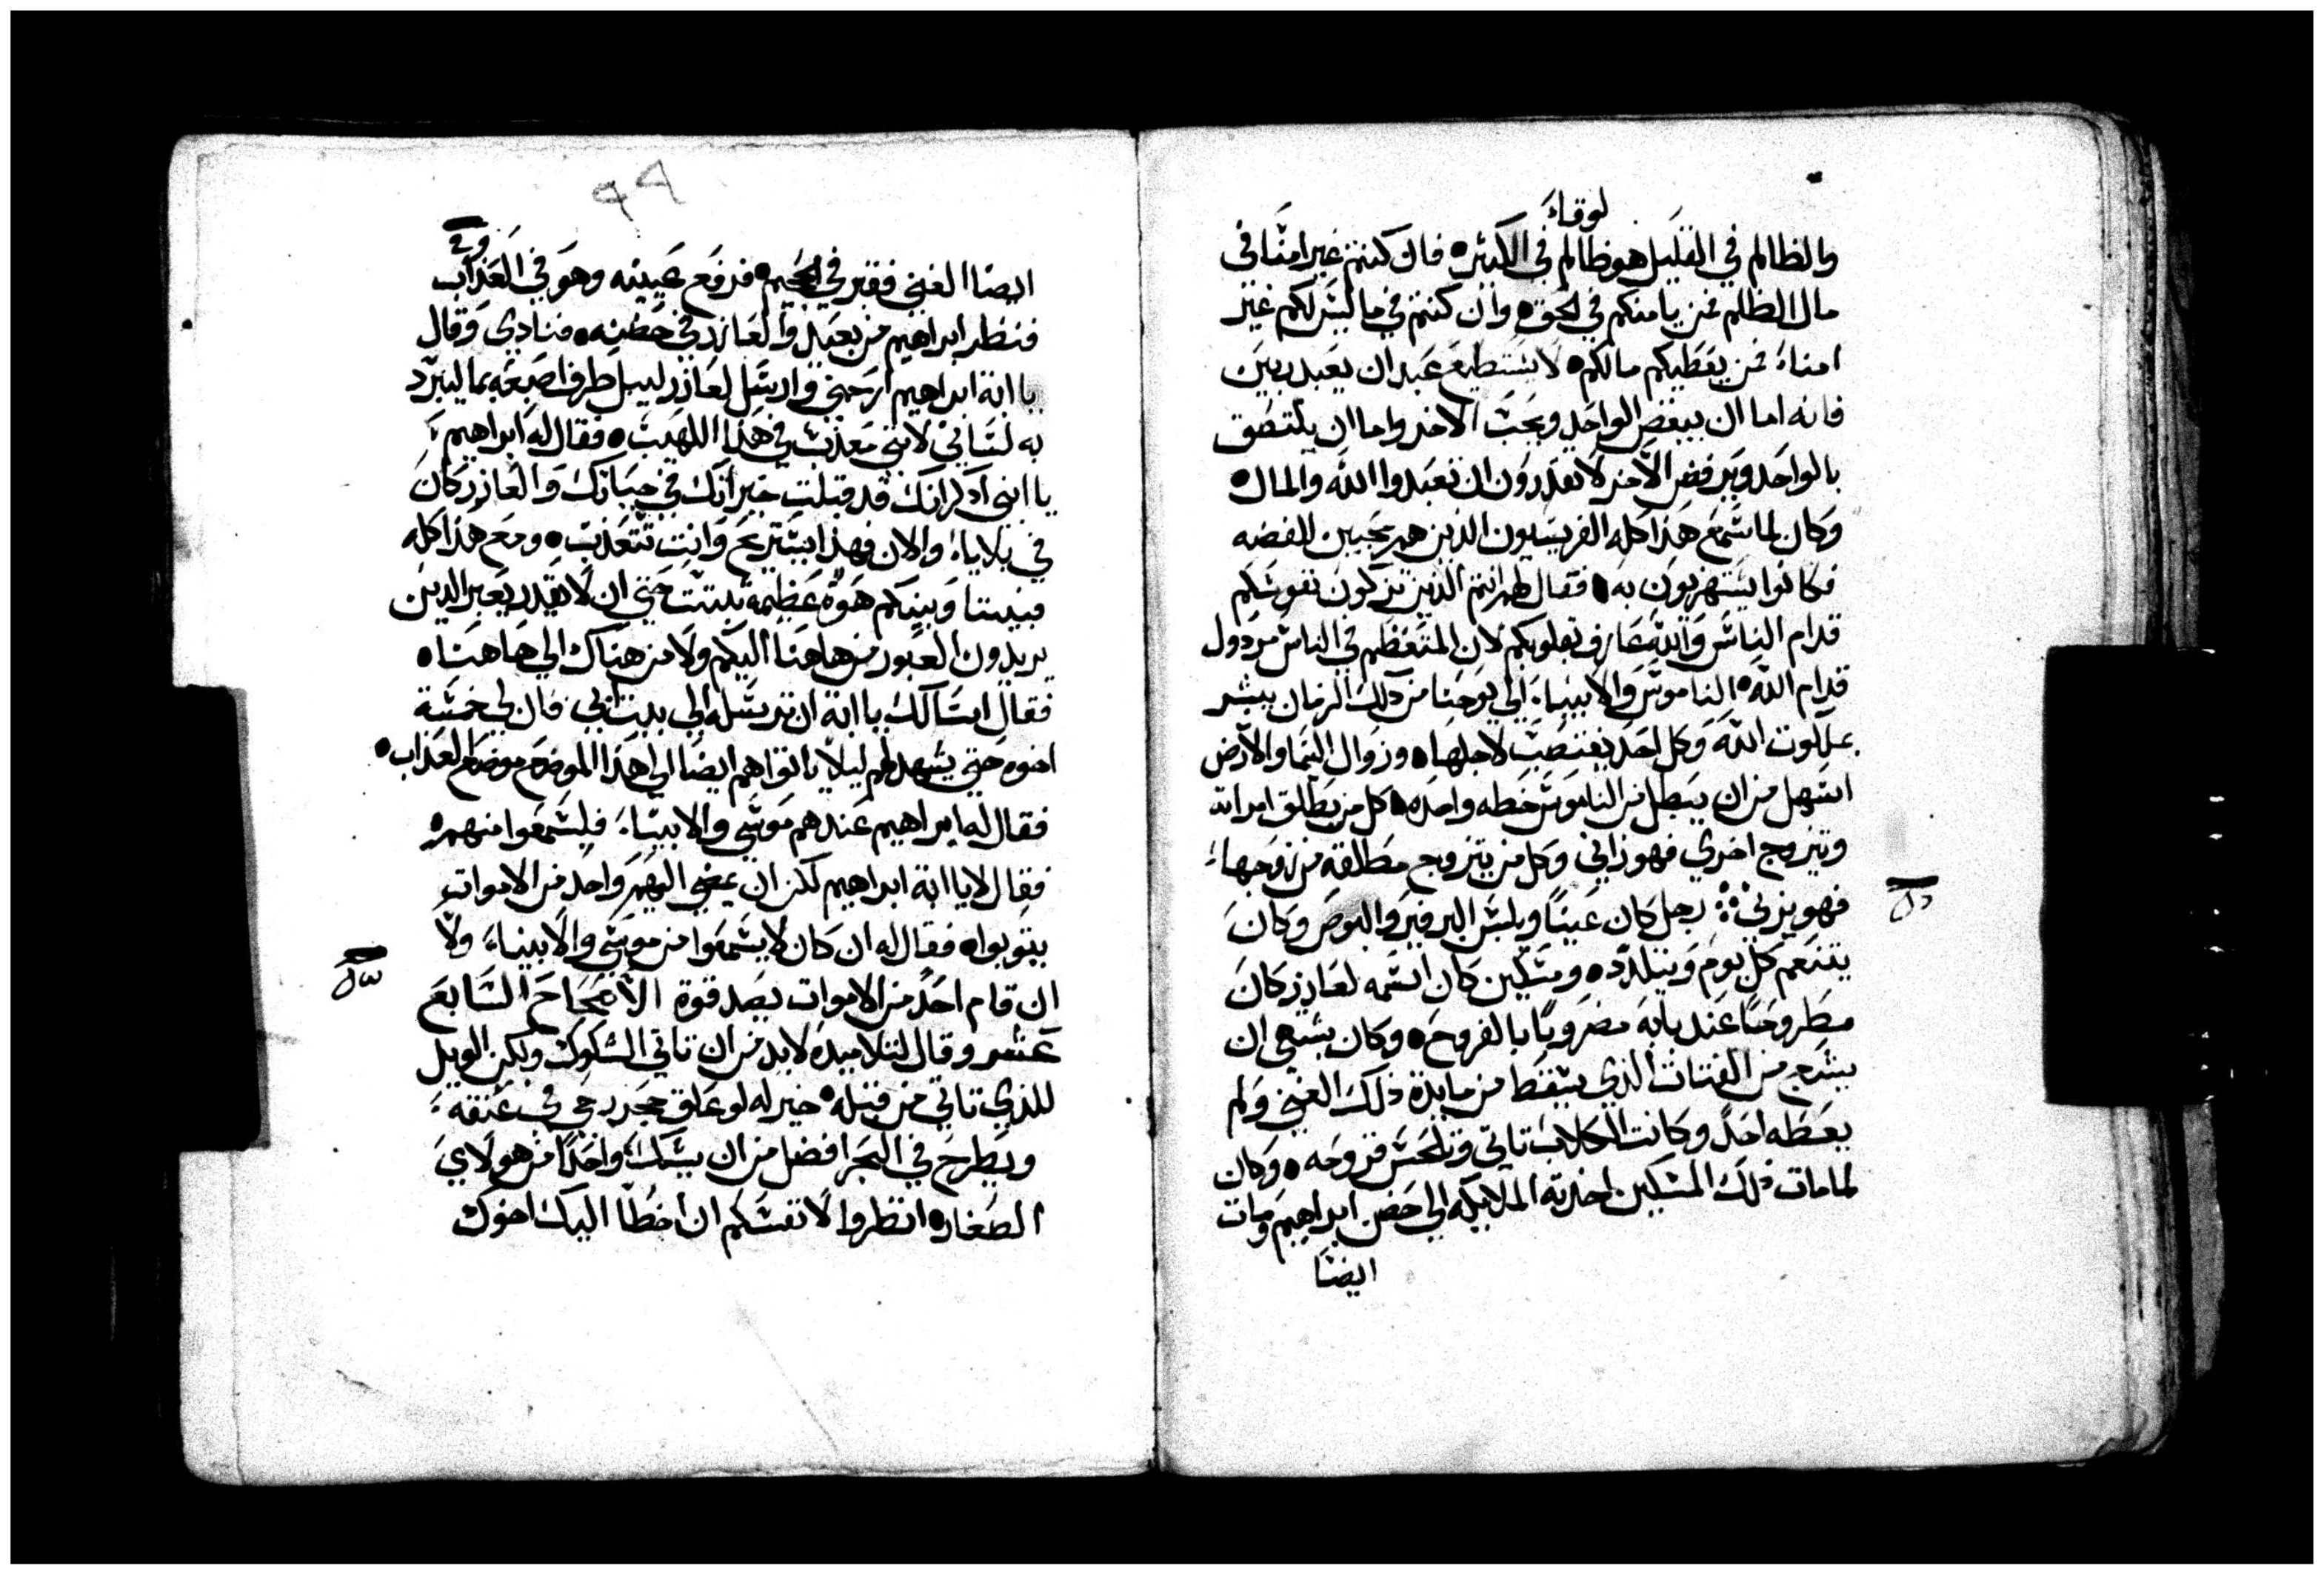 لوقاء
والظالم في القليل هو ظالم في الكثير• فان كنتم غير امنا في
مال الظلم فمن يامنكم في الحق• وان كنتم في ما ليس لكم غير
امناء فمن يعطيكم مالكم• لا يستطيع عبد ان يعبد ربين
فانه اما ان يبغض الواحد ويحب الاخر واما ان يلتصق
بالواحد ويرفض الاخر لا تقدرون ان تعبدوا الله والمال•
وكان لما سمع هذا كله الفريسيون الذين هم محبين للفضه
فكانوا يستهزيون به• فقال لهم انتم الذين تزكون نفوسكم
قدام الناس والله عارف بقلوبكم لان المتعظم في الناس مردول
قدام الله• الناموس والانبياء الي يوحنا من ذلك الزمان يبشر
بملكوت الله وكل احد يغتصب لاجلها• وزوال السما والارض
اسهل من ان يبطل من الناموس خطه واحده• كل من يطلق امراته
وتيزوج اخري فهو زاني وكل من يتزوج مطلقه من زوجهاء
فهو يزني؞ رجل كان غنيا ويلبس البرفير والبوص وكان
يتنعم كل يوم ويتلدد• ومسكين كان اسمه لعازر كان
مطروحا عند بابه مضروبا بالقروح• وكان يشتهي ان
يشبع من الفتات الذي يسقط من مايدة ذلك الغني ولم
يعطه احد وكانت الكلاب تاتي وتلحس قروحه• وكان
لما مات ذلك المسكين اخذته الملايكه الي حضن ابراهيم ومات
ايضا
٩٩
ايضا الغني فقبر في الجحيم• فرفع عينيه وهو في العذاب
فنظر ابراهيم من بعيد والعازر في حضنه• فنادي وقال
يا ابة ابراهيم ارحمني وارسل لعازر ليبل طرف اصبعه بما ليبرد
به لساني لانني معذب في هذا اللهيب• فقال له ابراهيم
يا ابني ادكر انك قد قبلت خيراتك في حياتك والعازر كان
في بلاياه والان فهذا يستريح وانت تتعذب• ومع هذا كله
فبيننا وبينكم هوة عظيمة ثبتت حتي ان لا يقدر يعبر الدين
يريدون العبور من هاهنا اليكم ولا من هناك الي هاهنا•
فقال اسالك يا ابة ان ترسله الي بيت ابي فان لي خمسة
اخوه حتي يشهد لهم ليلا ياتوا هم ايضا الي هذا الموضع موضع العذاب•
فقال له ابراهيم عندهم موسي والانبياء فليسمعوا منهم•
فقال لا يا ابة ابراهيم لكن ان يمضي اليهم واحد من الاموات
يتوبوا• فقال له ان كان لا يسمعوا من موسي والانبياء ولا
ان قام احد من الاموات يصدقوة الاصحاح السابع
عشر وقال لتلاميده لا بد من ان تاتي الشكوك ولكن الويل
للذي تاتي من قبله• خير له لو علق حجر رحي في عنقه
ويطرح في البحر افضل من ان يشكك واحدا من هولاي
الصغار• انظروا لانفسكم ان اخطا اليك اخوك